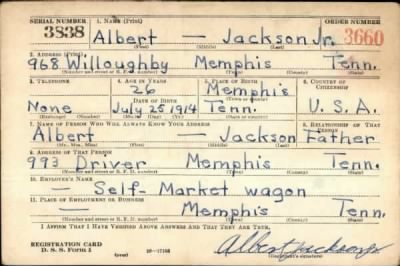 SERIAL NUMBER 1. NAME (Print) ORDER NUMBER
3838 Albert — Jackson Jr. 3660
(First) (Middle) (Last)
2. ADDRESS (Print)
968 Willoughby Memphis Tenn.
(Number and street or R. F. D. number) (Town) (County) (State)
3. TELEPHONE 4. AGE IN YEARS 5. PLACE OF BIRTH 6. COUNTRY OF CITIZENSHIP
26 Memphis
DATE OF BIRTH (Town or county)
None July 25 1914 Tenn. U. S. A.
(Exchange) (Number) (Mo.) (Day) (Yr.) (State or country)
7. NAME OF PERSON WHO WILL ALWAYS KNOW YOUR ADDRESS 8. RELATIONSHIP OF THAT PERSON
Albert — Jackson Father
(Mr., Mrs., Miss) (First) (Middle) (Last)
9. ADDRESS OF THAT PERSON
993 Driver Memphis Tenn.
(Number and street or R. F. D. number) (Town) (County) (State)
10. EMPLOYER'S NAME
— Self- Market wagon
11. PLACE OF EMPLOYMENT OR BUSINESS
— Memphis Tenn.
(Number and street or R. F. D. number) (Town) (County) (State)
I AFFIRM THAT I HAVE VERIFIED ABOVE ANSWERS AND THAT THEY ARE TRUE.
REGISTRATION CARD
D. S. S. Form 1 (over) Albert Jackson Jr.
(Registrant's signature)